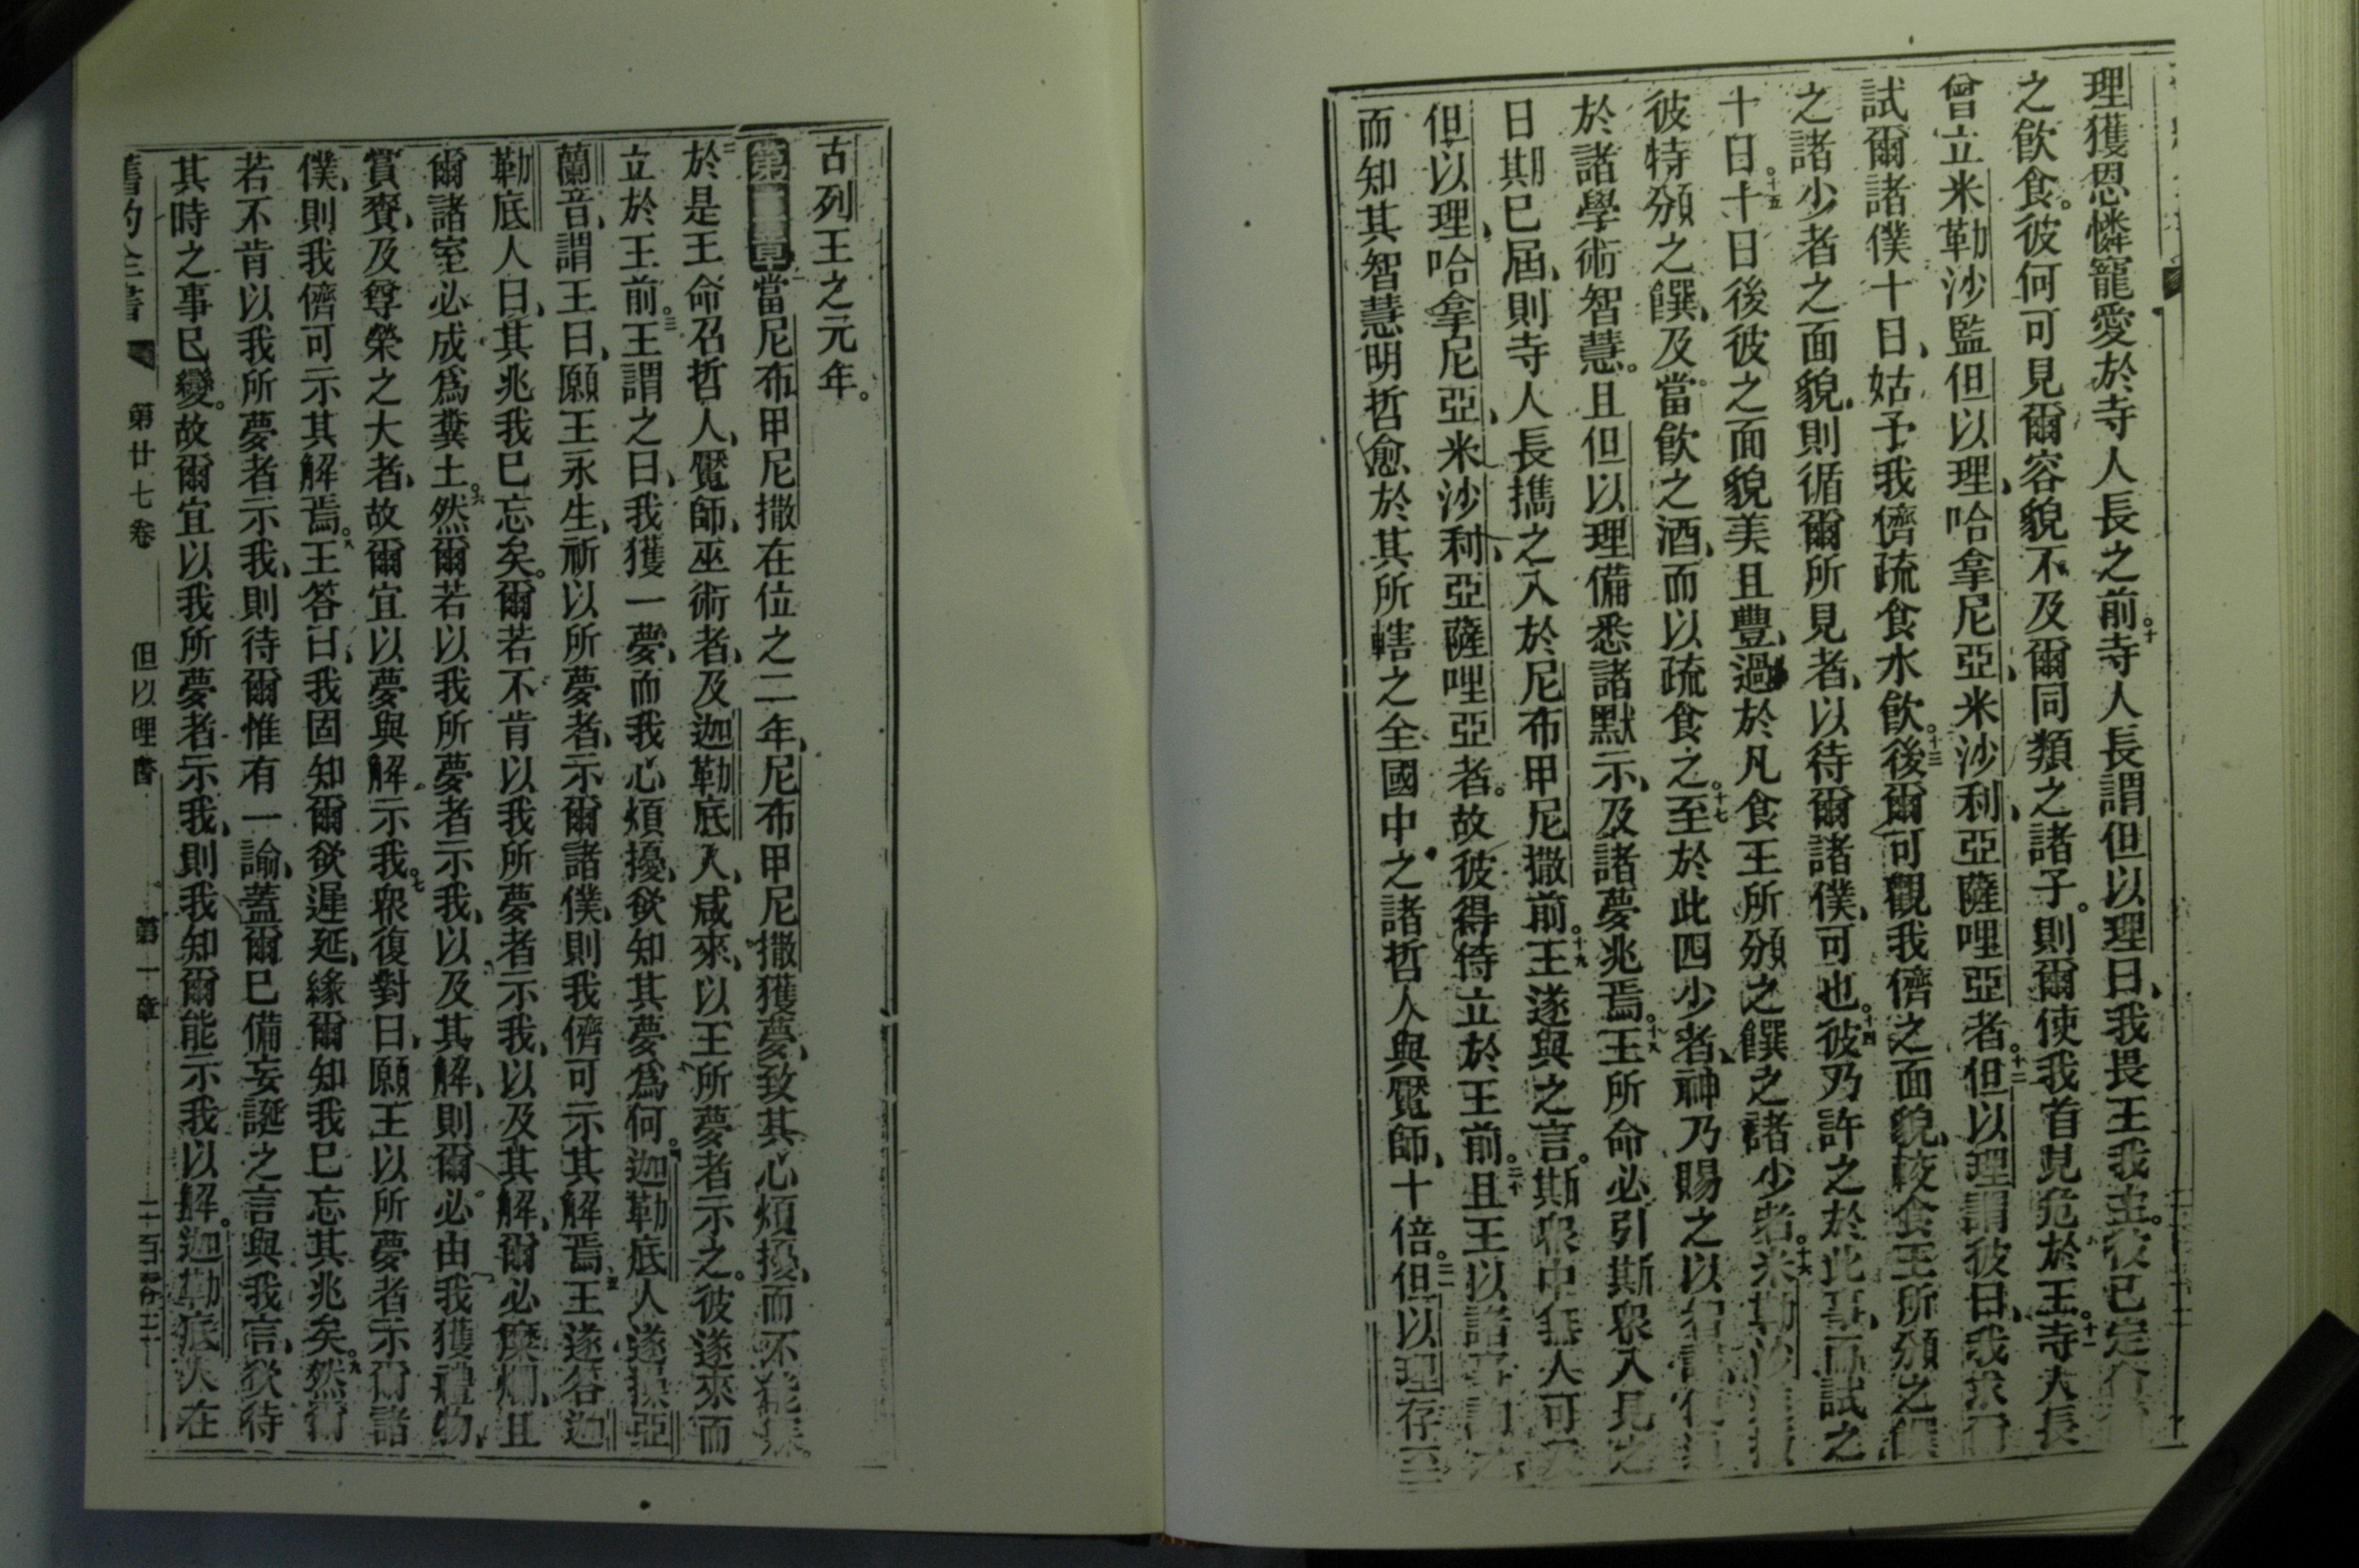 理獲恩憐寵愛於寺人長之前。十寺人長謂但以理曰、我畏王我主。彼已定
之飲食。彼何可見爾容貌不及爾同類之諸子。則爾使我首見危於王。十一寺人長
曾立米勒沙監但以理、哈拿尼亞、米沙利、亞薩哩亞者。十二但以理謂彼曰、我求
試爾諸僕十日、姑予我儕疏食水飲。十三後爾可觀我儕之面貌、較食王所頒之饌
之諸少者之面貌、則循爾所見者、以待爾諸僕、可也。十四彼乃許之於此事、而試之
十日。十五十日後彼之面貌美且豐、過於凡食王所頒之饌之諸少者。十六米勒沙
彼特頒之饌、及當飲之酒、而以疏食之。十七至於此四少者、神乃賜之以
於諸學術智慧。且但以理備悉諸默示、及諸夢兆焉。十八王所命必引斯眾入見之
日期已屆、則寺人長攜之入於尼布甲尼撒前。十九王遂與之言。斯眾中無人可
但以理、哈拿尼亞、米沙利、亞薩哩亞者。故彼得侍立於王前。二十且王以諸事
而知其智慧明哲愈於其所轄之全國中之諸哲人與魘師、十倍。二一但以理存至
古列王之元年。
第二章一當尼布甲尼撒在位之二年、尼布甲尼撒獲夢、致其心煩擾、而不能寐。
二於是王命召哲人、魘師、巫術者、及迦勒底人、咸來、以王所夢者示之。彼遂來而
立於王前。三王謂之曰、我獲一夢、而我心煩擾、欲知其夢爲何。四迦勒底人遂操亞
蘭音、謂王曰、願王永生、祈以所夢者、示爾諸僕、則我儕可示其解焉。五王遂答迦
勒底人曰、其兆我已忘矣。爾若不肯以我所夢者示我、以及其解、爾必糜爛、且
爾諸室必成爲糞土。六然爾若以我所夢者示我、以及其解、則爾必由我獲禮物、
賞賚、及尊榮之大者、故爾宜以夢與解示我。七眾復對曰、願王以所夢者示爾諸
僕、則我儕可示其解焉。八王答曰、我固知爾欲遲延、緣爾知我已忘其兆矣。九然爾
若不肯以我所夢者示我、則待爾惟有一諭、蓋爾已備妄誕之言與我言、欲待
其時之事已變。故爾宜以我所夢者示我、則我知爾能示我以解。迦勒底人在
舊約全書 第廿七卷 但以理書 第一章